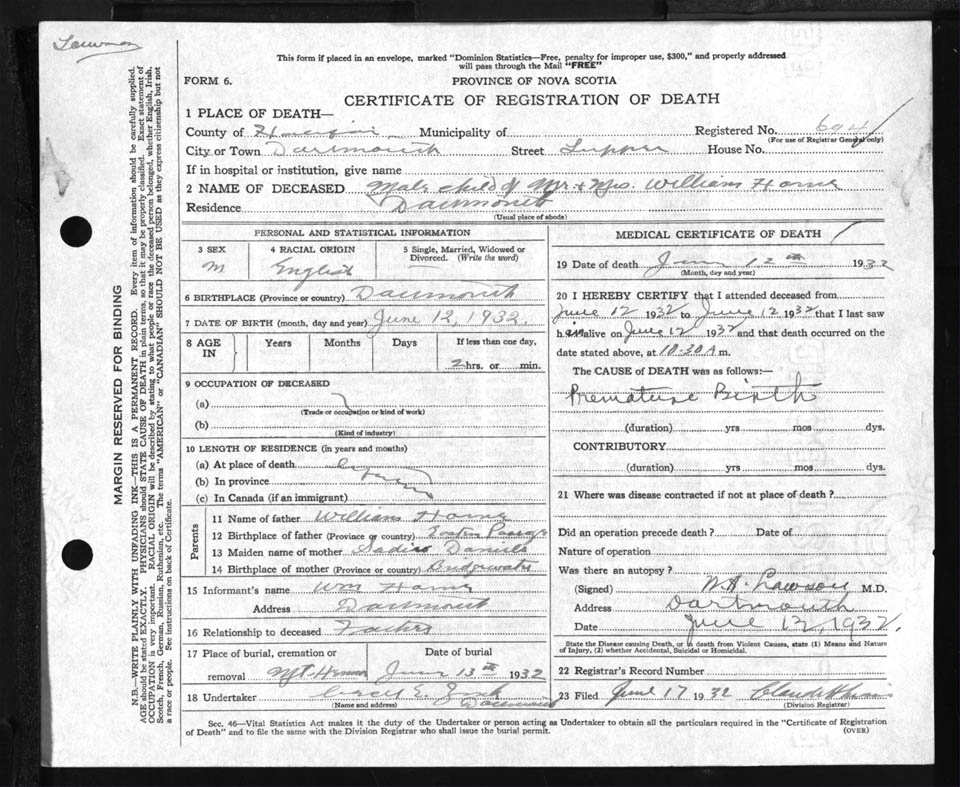 Lawson
This form if placed in an envelope, marked "Dominion Statistics—Free, penalty for improper use, $300," and properly addressed
will pass through the Mail "FREE"
FORM 6.
PROVINCE OF NOVA SCOTIA
CERTIFICATE OF REGISTRATION OF DEATH
1 PLACE OF DEATH—
County of Halifax Municipality of Registered No. 694
(For use of Registrar General only)
City or Town Dartmouth Street Tupper House No.
If in hospital or institution, give name
2 NAME OF DECEASED Male child of Mr. & Mrs. William Horne
Residence Dartmouth
(Usual place of abode)
PERSONAL AND STATISTICAL INFORMATION
3 SEX 4 RACIAL ORIGIN 5 Single, Married, Widowed or
Divorced. (Write the word)
M English
6 BIRTHPLACE (Province or country) Dartmouth
7 DATE OF BIRTH (month, day and year) June 12, 1932.
8 AGE IN Years Months Days If less than one day,
2 hrs. or min.
9 OCCUPATION OF DECEASED
(a)
(Trade or occupation or kind of work)
(b)
(Kind of industry)
10 LENGTH OF RESIDENCE (in years and months)
(a) At place of death
(b) In province
(c) In Canada (if an immigrant)
Parents
11 Name of father William Horne
12 Birthplace of father (Province or country) Eastern Passage
13 Maiden name of mother Daniels
14 Birthplace of mother (Province or country) Bridgewater
15 Informant's name Wm Horne
Address Dartmouth
16 Relationship to deceased Father
17 Place of burial, cremation or removal Date of burial
Mt. Hermon June 13th 1932
18 Undertaker Dartmouth
(Name and address)
MEDICAL CERTIFICATE OF DEATH
19 Date of death June 12th 1932
(Month, day and year)
20 I HEREBY CERTIFY that I attended deceased from
June 12 1932 to June 12 1932 that I last saw
him alive on June 12 1932 and that death occurred on the
date stated above, at 10.30 A m.
The CAUSE of DEATH was as follows:—
Premature Birth
(duration) yrs mos dys.
CONTRIBUTORY
(duration) yrs mos dys.
21 Where was disease contracted if not at place of death?
Did an operation precede death? Date of
Nature of operation
Was there an autopsy?
(Signed) Lawson M.D.
Address Dartmouth
Date June 12, 1932.
State the Disease causing Death, or in death from Violent Causes, state (1) Means and Nature
of Injury, (2) whether Accidental, Suicidal or Homicidal.
22 Registrar's Record Number
23 Filed June 17 1932
(Division Registrar)
Sec. 46—Vital Statistics Act makes it the duty of the Undertaker or person acting as Undertaker to obtain all the particulars required in the "Certificate of Registration
of Death" and to file the same with the Division Registrar who shall issue the burial permit.
(OVER)
MARGIN RESERVED FOR BINDING
N.B.—WRITE PLAINLY WITH UNFADING INK—THIS IS A PERMANENT RECORD. Every item of information should be carefully supplied.
AGE should be stated EXACTLY. PHYSICIANS should STATE CAUSE OF DEATH in plain terms, so that it may be properly classified. Exact statement of
OCCUPATION is very important. RACIAL ORIGIN will be described by stating to what people or race the deceased person belonged, whether English, Irish,
Scotch, French, German, Russian, Ruthenian, etc. The terms "AMERICAN" or "CANADIAN" SHOULD NOT BE USED as they express citizenship but not
a race or people. See instructions on back of Certificate.